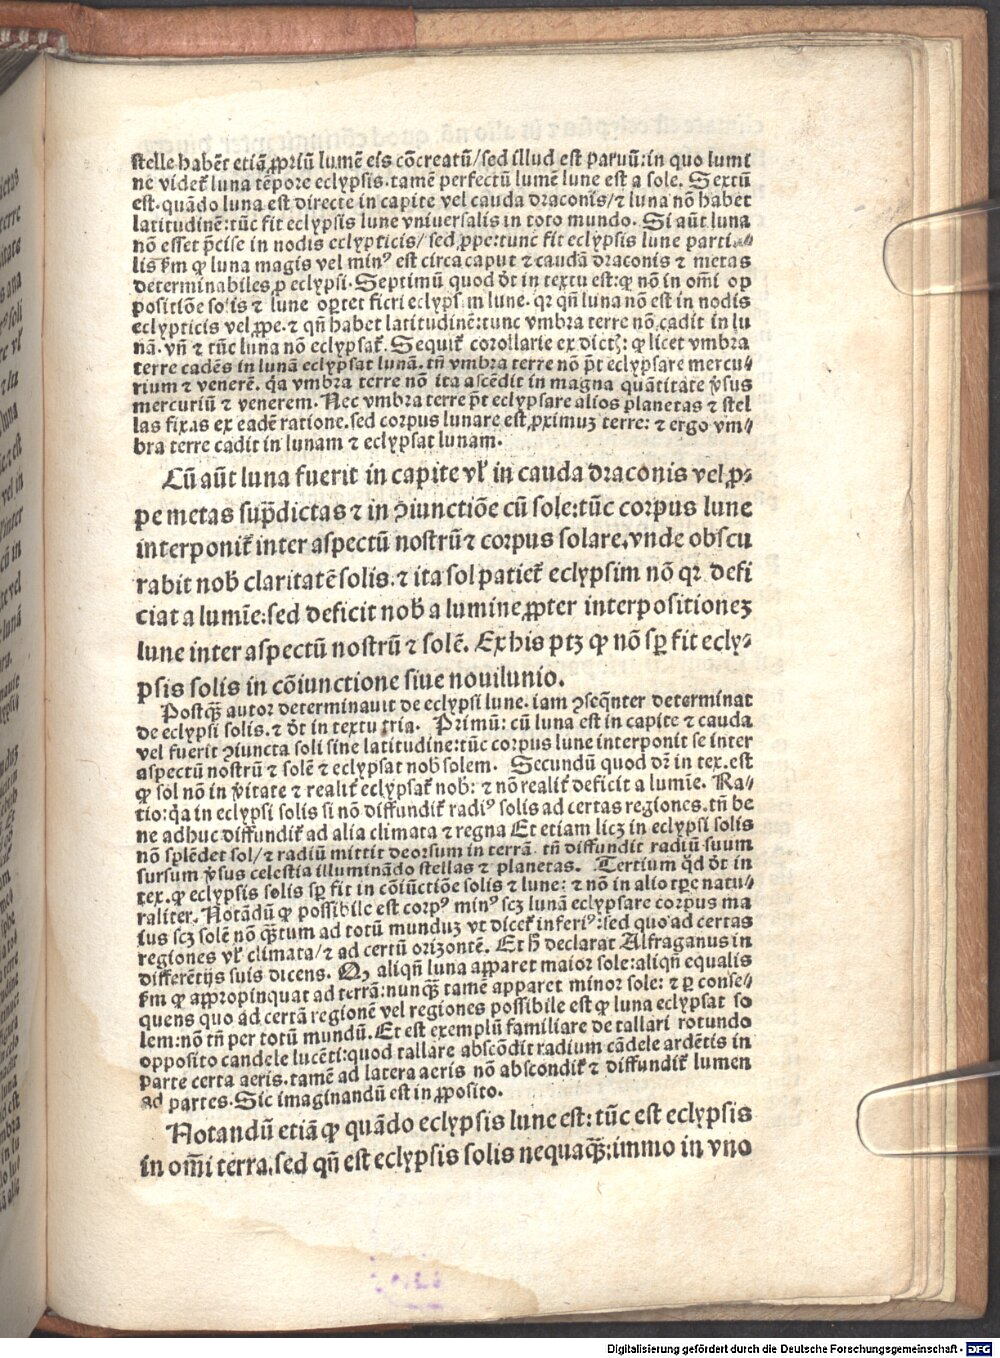 stelle habēt etiā ꝓpriū lumē eis cōcreatū/sed illud est paruū: in quo lumi
ne videt̄ luna tēpore eclypsis. tamē perfectū lumē lune est a sole. Sextū
est. quādo luna est directe in capite vel cauda draconis/⁊ luna nō habet
latitudinē: tūc fit eclypsis lune vniuersalis in toto mundo. Si aūt luna
nō esset p̄cise in nodis eclypticis/ sed ꝓpe: tunc fit eclypsis lune parti
lis ẜm ꝙ luna magis vel minꝰ est circa caput ⁊ caudā draconis ⁊ metas
determinabiles ꝓ eclypsi. Septimū quod dr̄ in textu est: ꝙ nō in om̄i op
positiōe solis ⁊ lune oꝑtet fieri eclypsim lune. qꝛ qn̄ luna nō est in nodis
eclypticis vel ꝓpe. ⁊ qn̄ habet latitudinē: tunc vmbra terre nō cadit in lu
nā. vn̄ ⁊ tūc luna nō eclypsat̄. Sequit̄ corollarie ex dict̄: ꝙ licet vmbra
terre cadēs in lunā eclypsat lunā. tn̄ vmbra terre nō pt̄ eclypsare mercu⸗
rium ⁊ venerē. qa vmbra terre nō ita ascēdit in magna quātitate v̄sus
mercuriū ⁊ venerem. Nec vmbra terre pt̄ eclypsare alios planetas ⁊ stel
las fixas ex eadē ratione. sed corpus lunare est ꝓximuꝫ terre: ⁊ ergo vm⸗
bra terre cadit in lunam ⁊ eclypsat lunam.
Cū aūt luna fuerit in capite vl̄ in cauda draconis vel ꝓ⸗
pe metas sup̄dictas ⁊ in ꝯiunctiōe cū sole: tūc corpus lune
interponit̄ inter aspectū nostrū ⁊ corpus solare. vnde obscu
rabit nob̄ claritatē solis. ⁊ ita sol patiet̄ eclypsim nō qꝛ defi
ciat a lumīe: sed deficit nob̄ a lumine ꝓpter interpositioneꝫ
lune inter aspectū nostrū ⁊ solē. Ex his ptꝫ ꝙ nō sꝑ fit ecly⸗
psis solis in cōiunctione siue nouilunio.
Postꝙ̄ autor determinauit de eclypsi lune. iam ꝯseqn̄ter determinat
de eclypsi solis. ⁊ dr̄ in textu tria. Primū: cū luna est in capite ⁊ cauda
vel fuerit ꝯiuncta soli sine latitudine: tūc corpus lune interponit se inter
aspectū nostrū ⁊ solē ⁊ eclypsat nob̄ solem. Secundū quod dr̄ in tex. est
ꝙ sol nō in v̄itate ⁊ realit̄ eclypsat̄ nob̄: ⁊ nō realit̄ deficit a lumīe. Ra⸗
tio: qa in eclypsi solis si nō diffundit̄ radiꝰ solis ad certas regiones. tn̄ be
ne adhuc diffundit̄ ad alia climata ⁊ regna Et etiam licꝫ in eclypsi solis
nō splēdet sol/⁊ radiū mittit deorsum in terrā. tn̄ diffundit radiū suum
sursum v̄sus celestia illuminādo stellas ⁊ planetas. Tertium qd̄ dr̄ in
tex. ꝙ eclypsis solis sꝑ fit in cōiūctiōe solis ⁊ lune: ⁊ nō in alio tꝑe natu⸗
raliter. Notādū ꝙ possibile est corpꝰ minꝰ scꝫ lunā eclypsare corpus ma
ius scꝫ solē nō qꝫtum ad totū munduꝫ vt dicet̄ inferiꝰ: sed quo ad certas
regiones vl̄ climata/⁊ ad certū orizontē. Et h̄ declarat Alfraganus in
differētijs suis dicens. Qꝫ aliqn̄ luna apparet maior sole: aliqn̄ equalis
ẜm ꝙ appropinquat ad terrā: nunꝙ̄ tamē apparet minor sole: ⁊ ꝑ conse⸗
quens quo ad certā regionē vel regiones possibile est ꝙ luna eclypsat so
lem: nō tn̄ per totū mundū. Et est exemplū familiare de tallari rotundo
opposito candele lucēti: quod tallare abscōdit radium cādele ardētis in
parte certa aeris. tamē ad latera aeris nō abscondit̄ ⁊ diffundit̄ lumen
ad partes. Sic imaginandū est in ꝓposito.
Notandū etiā ꝙ quādo eclypsis lune est: tūc est eclypsis
in om̄i terra. sed qn̄ est eclypsis solis nequaꝙ̄: immo in vno
Digitalisierung gefördert durch die Deutsche Forschungsgemeinschaft - DFG